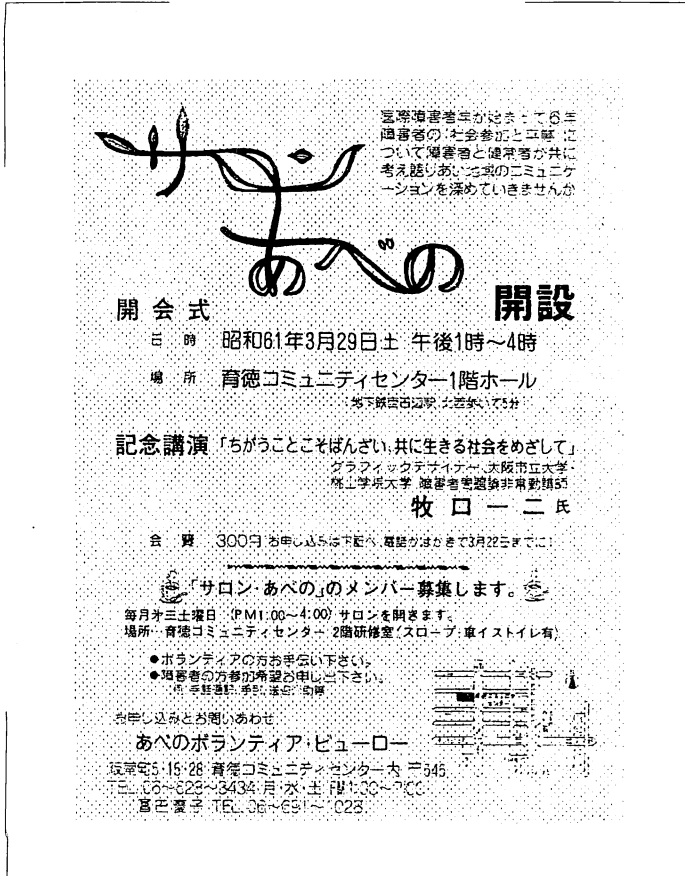 国際障害者年が始まって6年
障害者の「社会参加と平等」に
ついて障害者と健常者が共に
考え語りあい地域のコミュニケ
ーションを深めていきませんか
サロン
あべの
開設
開会式
日時 昭和61年3月29日土 午後1時〜4時
場所 育徳コミュニティセンター1階ホール
地下鉄西田辺駅、北西歩いて5分
記念講演「ちがうことこそばんざい、共に生きる社会をめざして」
グラフィックデザイナー、大阪市立大学・
桃山学院大学 障害者問題論非常勤講師
牧口一二氏
会費 300円 お申し込みは下記へ、電話かはがきで3月22日までに!
「サロン・あべの」のメンバー募集します。
毎月第三土曜日 (PM1:00〜4:00) サロンを開きます。
場所・育徳コミュニティセンター 2階研修室(スロープ・車イストイレ有)
●ボランティアの方お手伝い下さい。
●障害者の方参加希望お申し出下さい。
お申し込みとお問いあわせ
あべのボランティア・ビューロー
阪南町5・15・28 育徳コミュニティセンター内 〒545
TEL.06〜623〜3434 月・水・土
TEL.06〜691〜